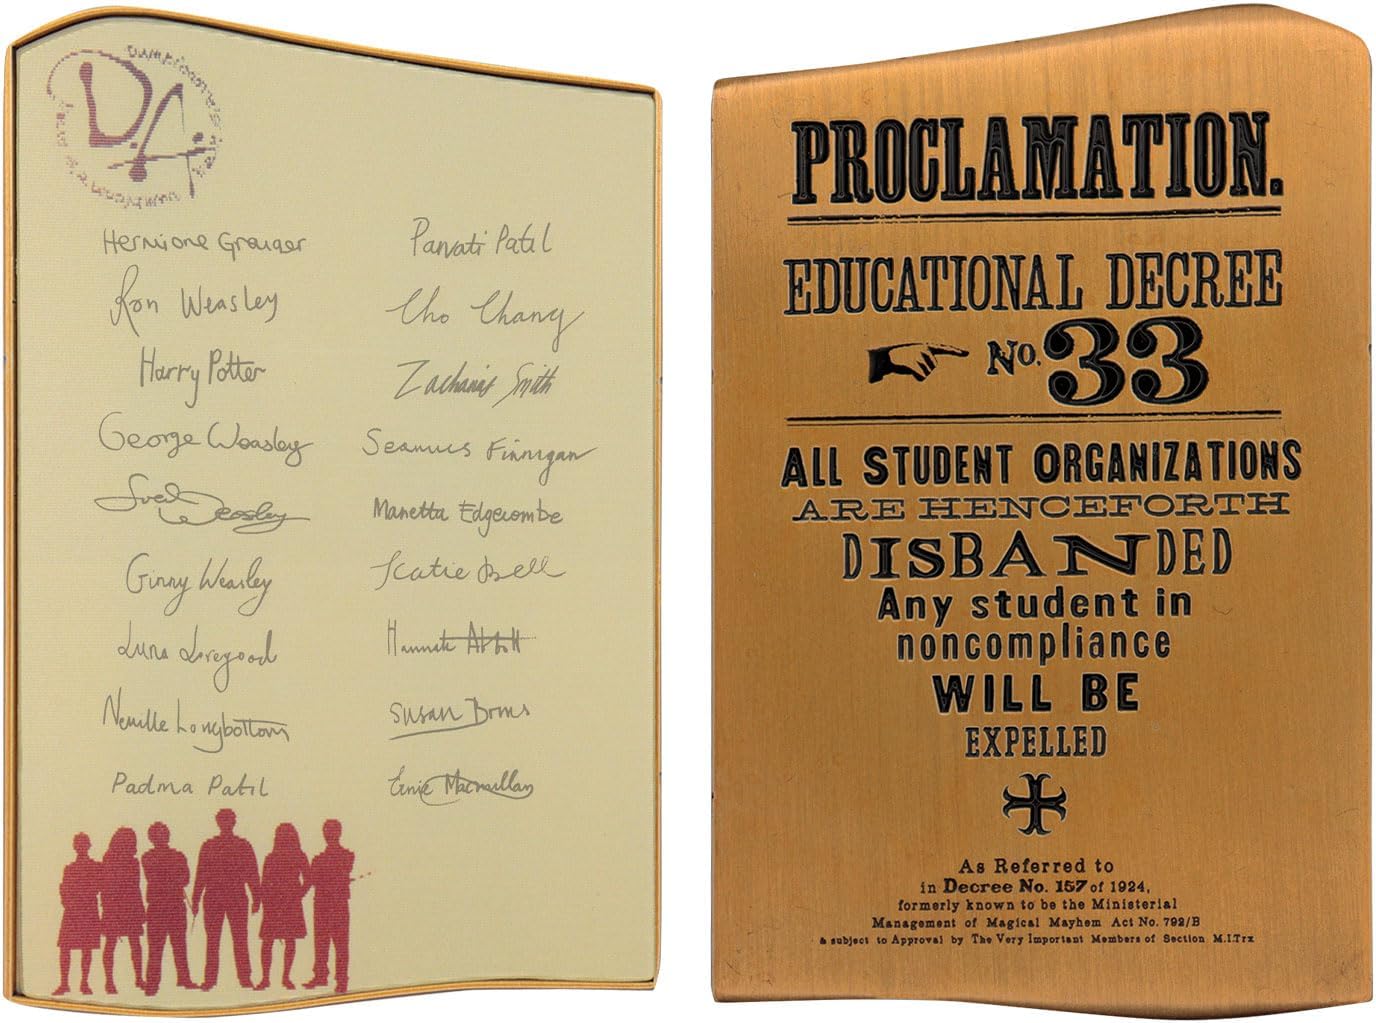 Dumbledore's Army
D.A.
Hermione Granger
Ron Weasley
Harry Potter
George Weasley
Fred Weasley
Ginny Weasley
Luna Lovegood
Neville Longbottom
Padma Patil
Parvati Patil
Cho Chang
Zacharias Smith
Seamus Finnigan
Marietta Edgecombe
Katie Bell
Hannah Abbott
Susan Bones
Ernie Macmillan
PROCLAMATION.
EDUCATIONAL DECREE
No. 33
ALL STUDENT ORGANIZATIONS
ARE HENCEFORTH
DISBANDED
Any student in
noncompliance
WILL BE
EXPELLED
As Referred to
in Decree No. 157 of 1924,
formerly known to be the Ministerial
Management of Magical Mayhem Act No. 792/B
& subject to Approval by The Very Important Members of Section M.I.Trx